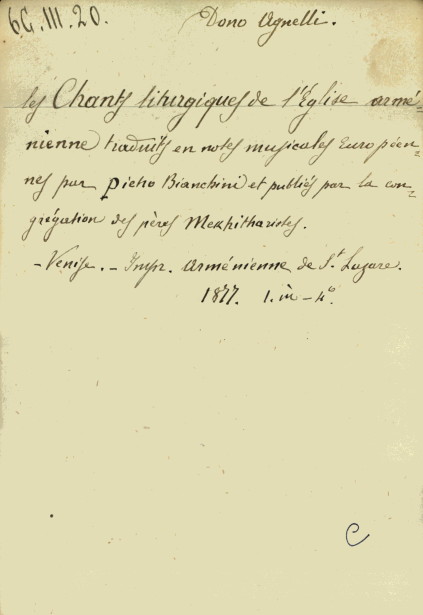 6G.III.20.
Dono Agnelli.
les Chants liturgiques de l'Église armé-
nienne traduits en notes musicales Européen-
nes par Pietro Bianchini et publiés par la con-
grégation des pères Mekhitharistes.
- Venise. - Impr. Arménienne de S.t Lazare.
1877. 1. in - 4°.
C